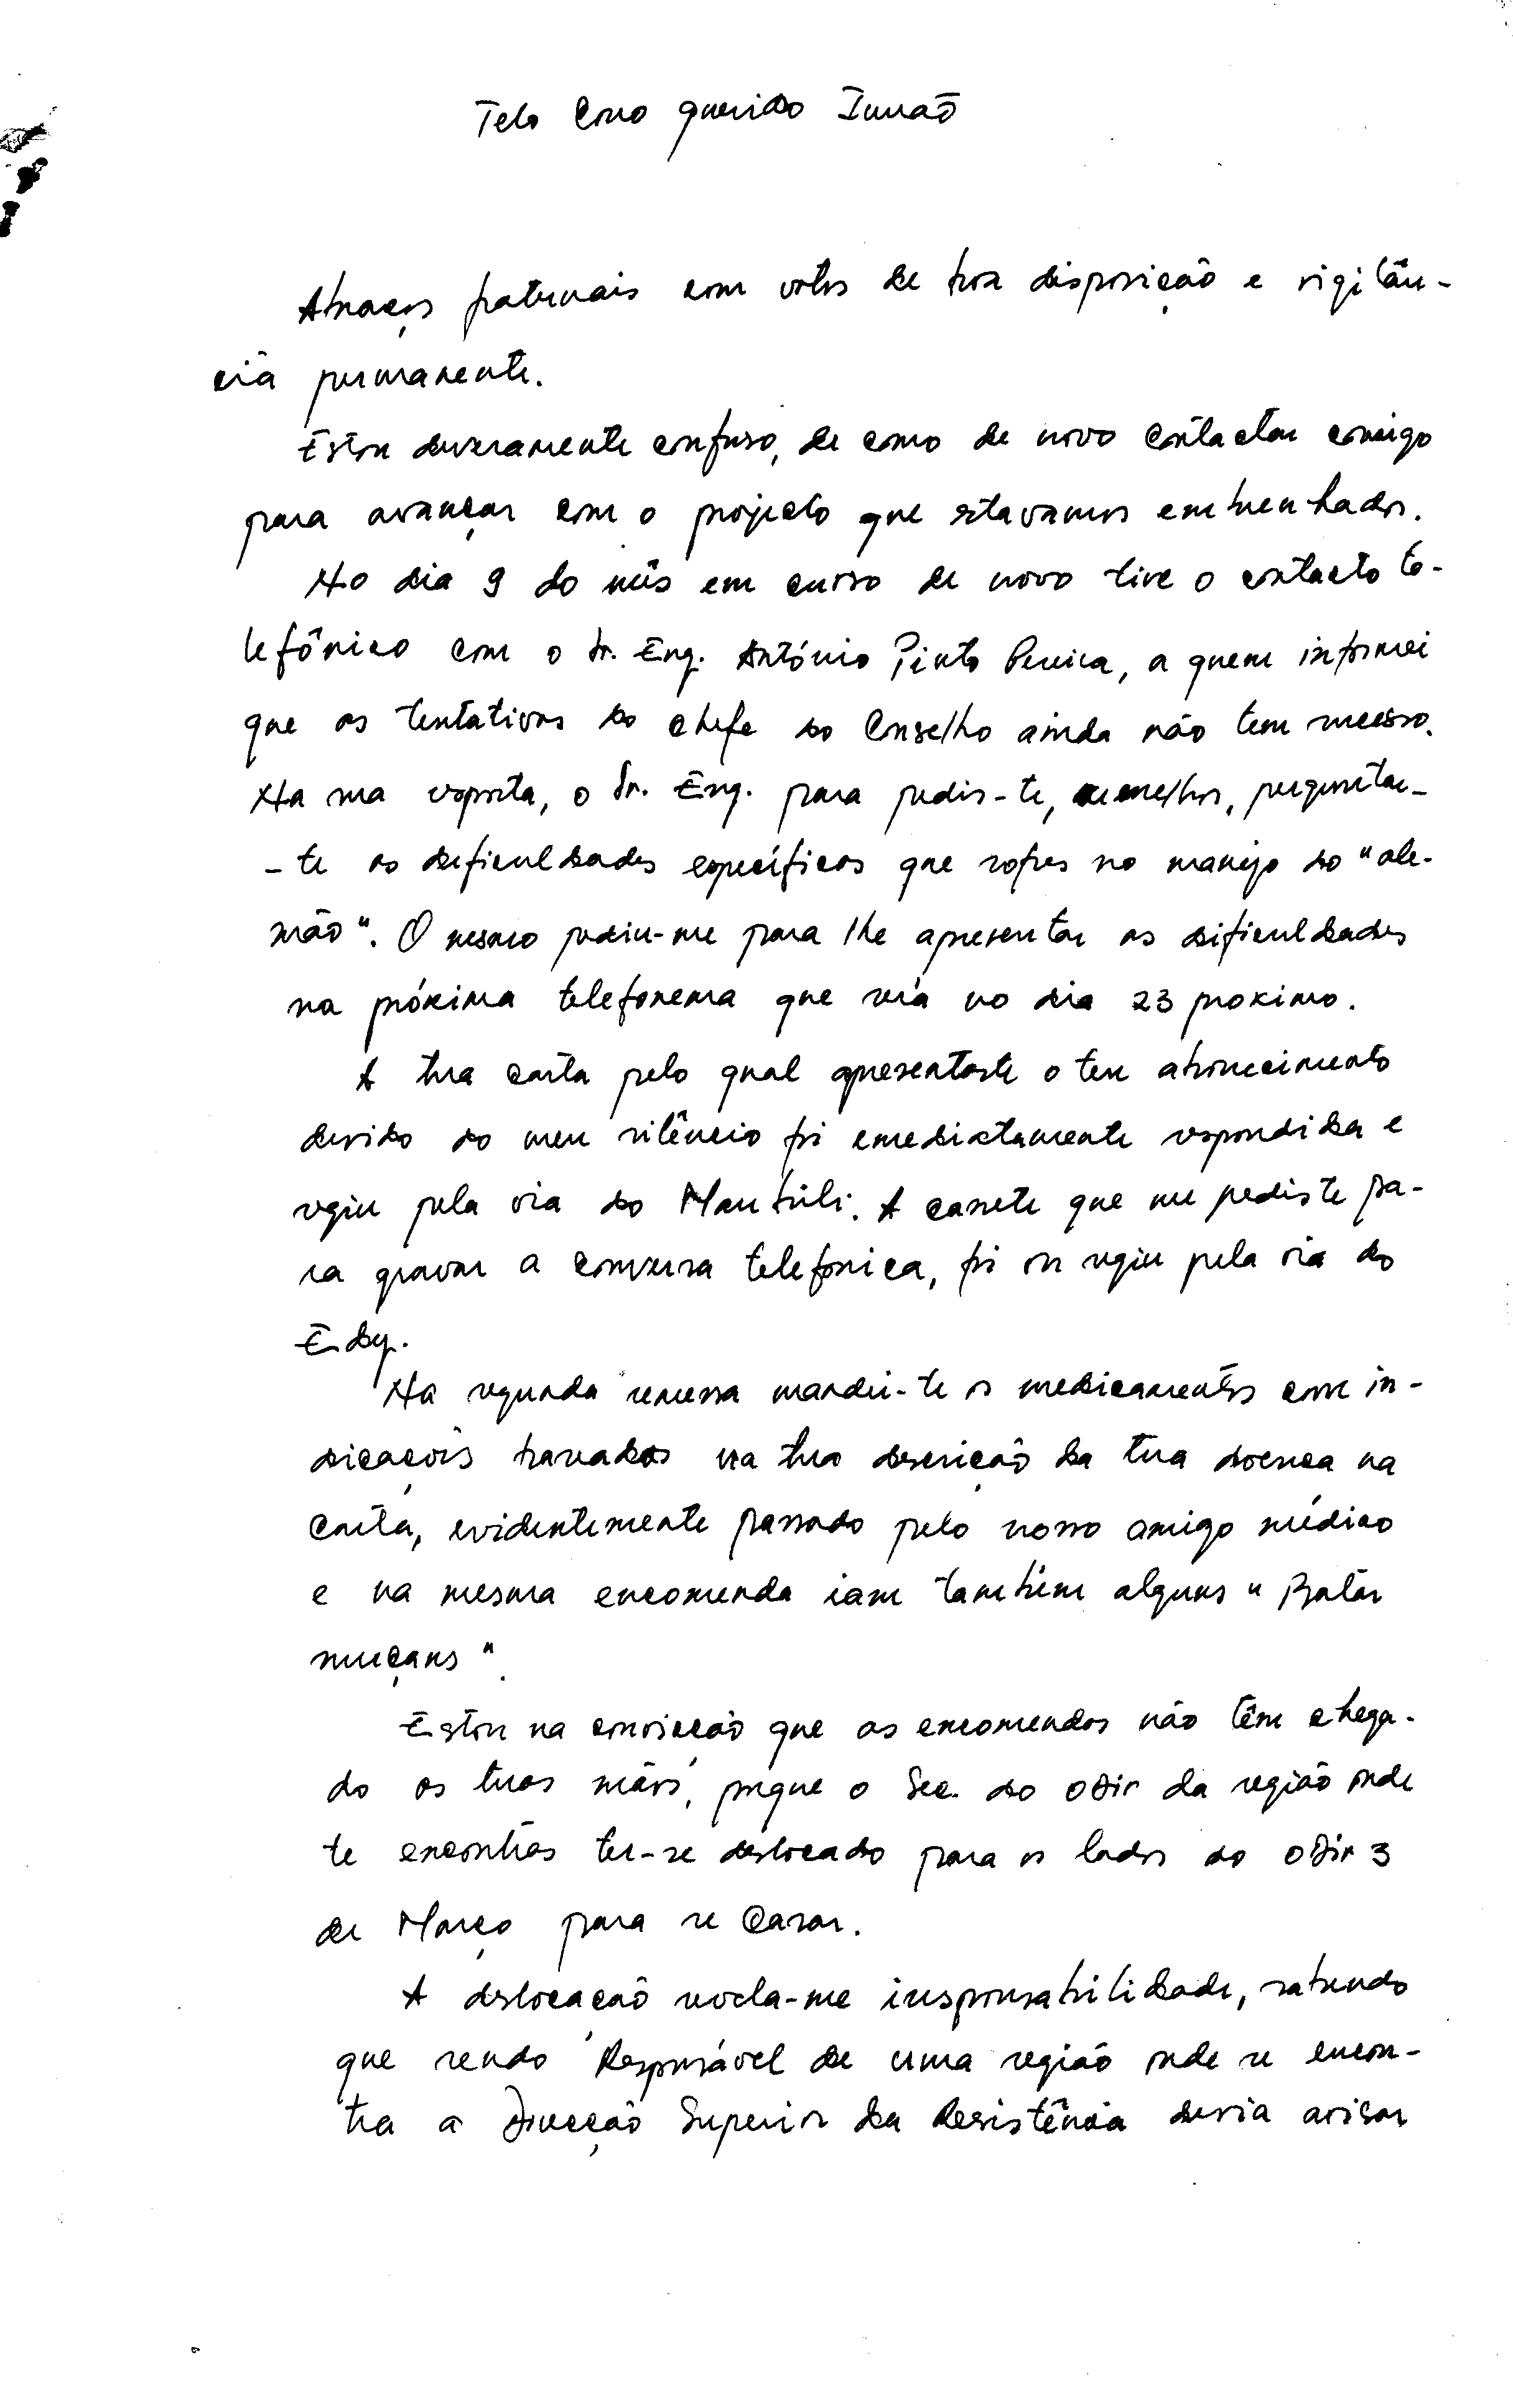 Telo Como querido Irmão
Abraços fraternais com votos de boa disposição e vigilân-
cia permanente.
Estou deveramente confuso, de como de novo contactar comigo
para avançar com o projecto que estavamos embrenhados.
No dia 9 do mês em curso de novo tive o contacto te-
lefônico com o Sr. Eng. António Pinto Pereira, a quem informei
que as tentativas do chefe do Conselho ainda não tem sucesso.
Na sua resposta, o Sr. Eng. para pedir-te, melhor, perguntar-
-te as deficuldades específicas que sofres no manejo do "ale-
mão". O mesmo pediu-me para lhe apresentar as dificuldades
na próxima telefonema que será no dia 23 proximo.
A tua carta pelo qual apresentaste o teu aborrecimento
devido ao meu silêncio foi emediatamente respondida e
seguiu pela via do Mantúli. A cassete que me pediste pa-
ra gravar a conversa telefonica, foi ou seguiu pela via do
Edy.
Na segunda remessa mandei-te os medicamentos com in-
dicaçois baseados na tua descrição da tua doença na
carta, evidentemente passado pelo nosso amigo médico
e na mesma encomenda iam também alguns "
muçans".
Estou na convicção que as encomendas não têm chega-
do as tuas mãos, porque o Sec. do ODIR da região onde
te encontras ter-se deslocado para os lados do ODIR 3
de Março para se casar.
A deslocação revela-me irresponsabilidade, sabendo
que sendo Responsável de uma região onde se encon-
tra a Direcção Superior da Resistência devia avisar